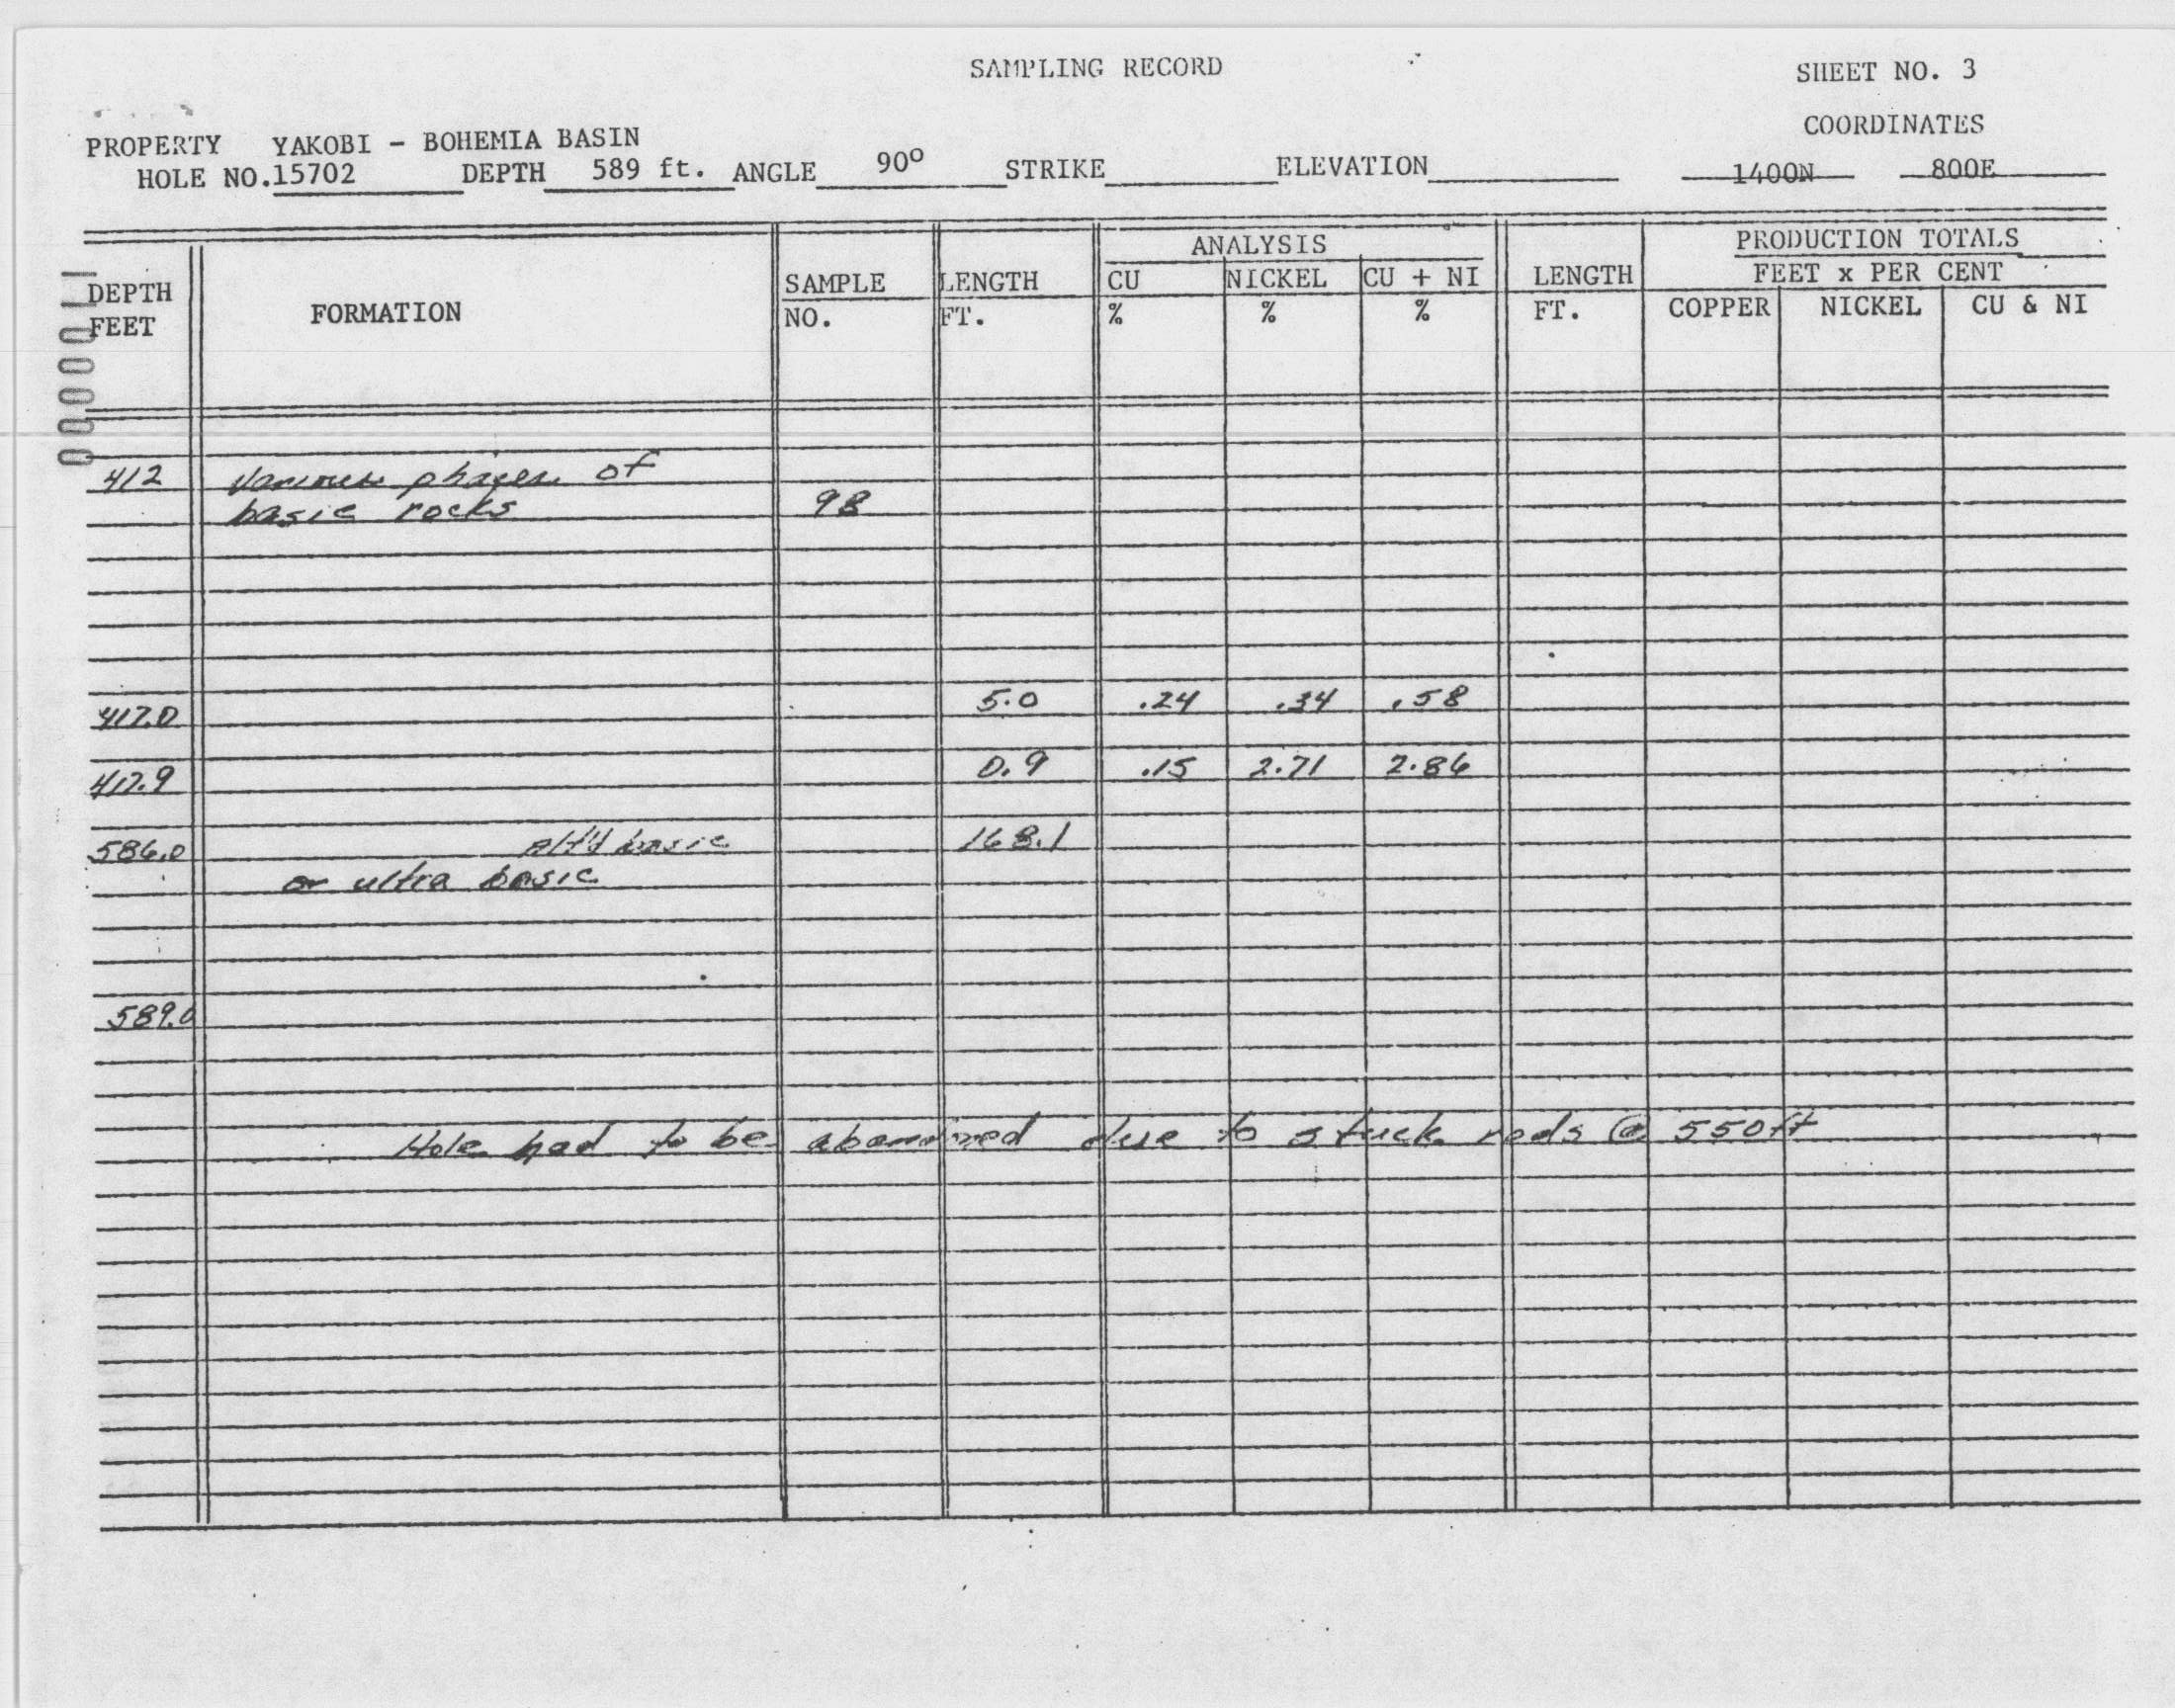 SAMPLING RECORD
SHEET NO. 3
COORDINATES
PROPERTY YAKOBI - BOHEMIA BASIN
HOLE NO. 15702 DEPTH 589 ft. ANGLE 90° STRIKE ELEVATION 1400N 800E
ANALYSIS PRODUCTION TOTALS
DEPTH SAMPLE LENGTH CU NICKEL CU + NI LENGTH FEET x PER CENT
FEET FORMATION NO. FT. % % % FT. COPPER NICKEL CU & NI
0000011
412 Various phases of
basic rocks 98
417.0 5.0 .24 .34 .58
417.9 0.9 .15 2.71 2.86
586.0 Alt'd basic 168.1
or ultra basic
589.0
Hole had to be abandoned due to stuck rods @ 550 ft